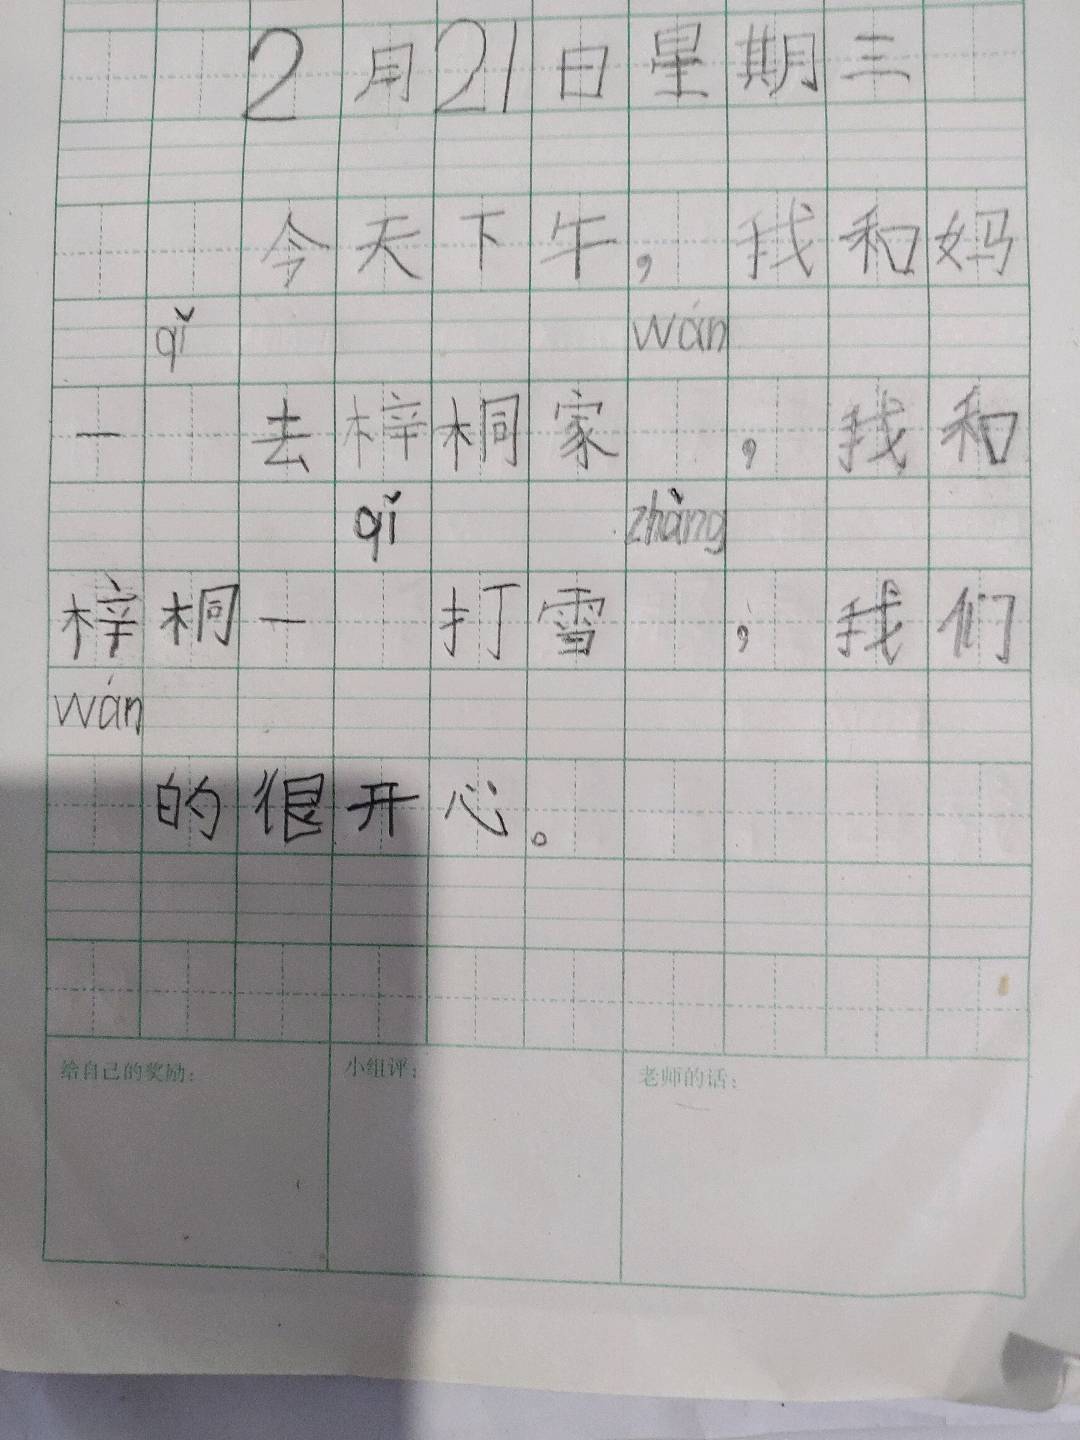 2月21日星期三
今天下午，我和妈
qǐ wán
一 去梓桐家 ，我和
qǐ zhàng
梓桐一 打雪 ，我们
wán
的很开心。
给自己的奖励： 小组评： 老师的话：